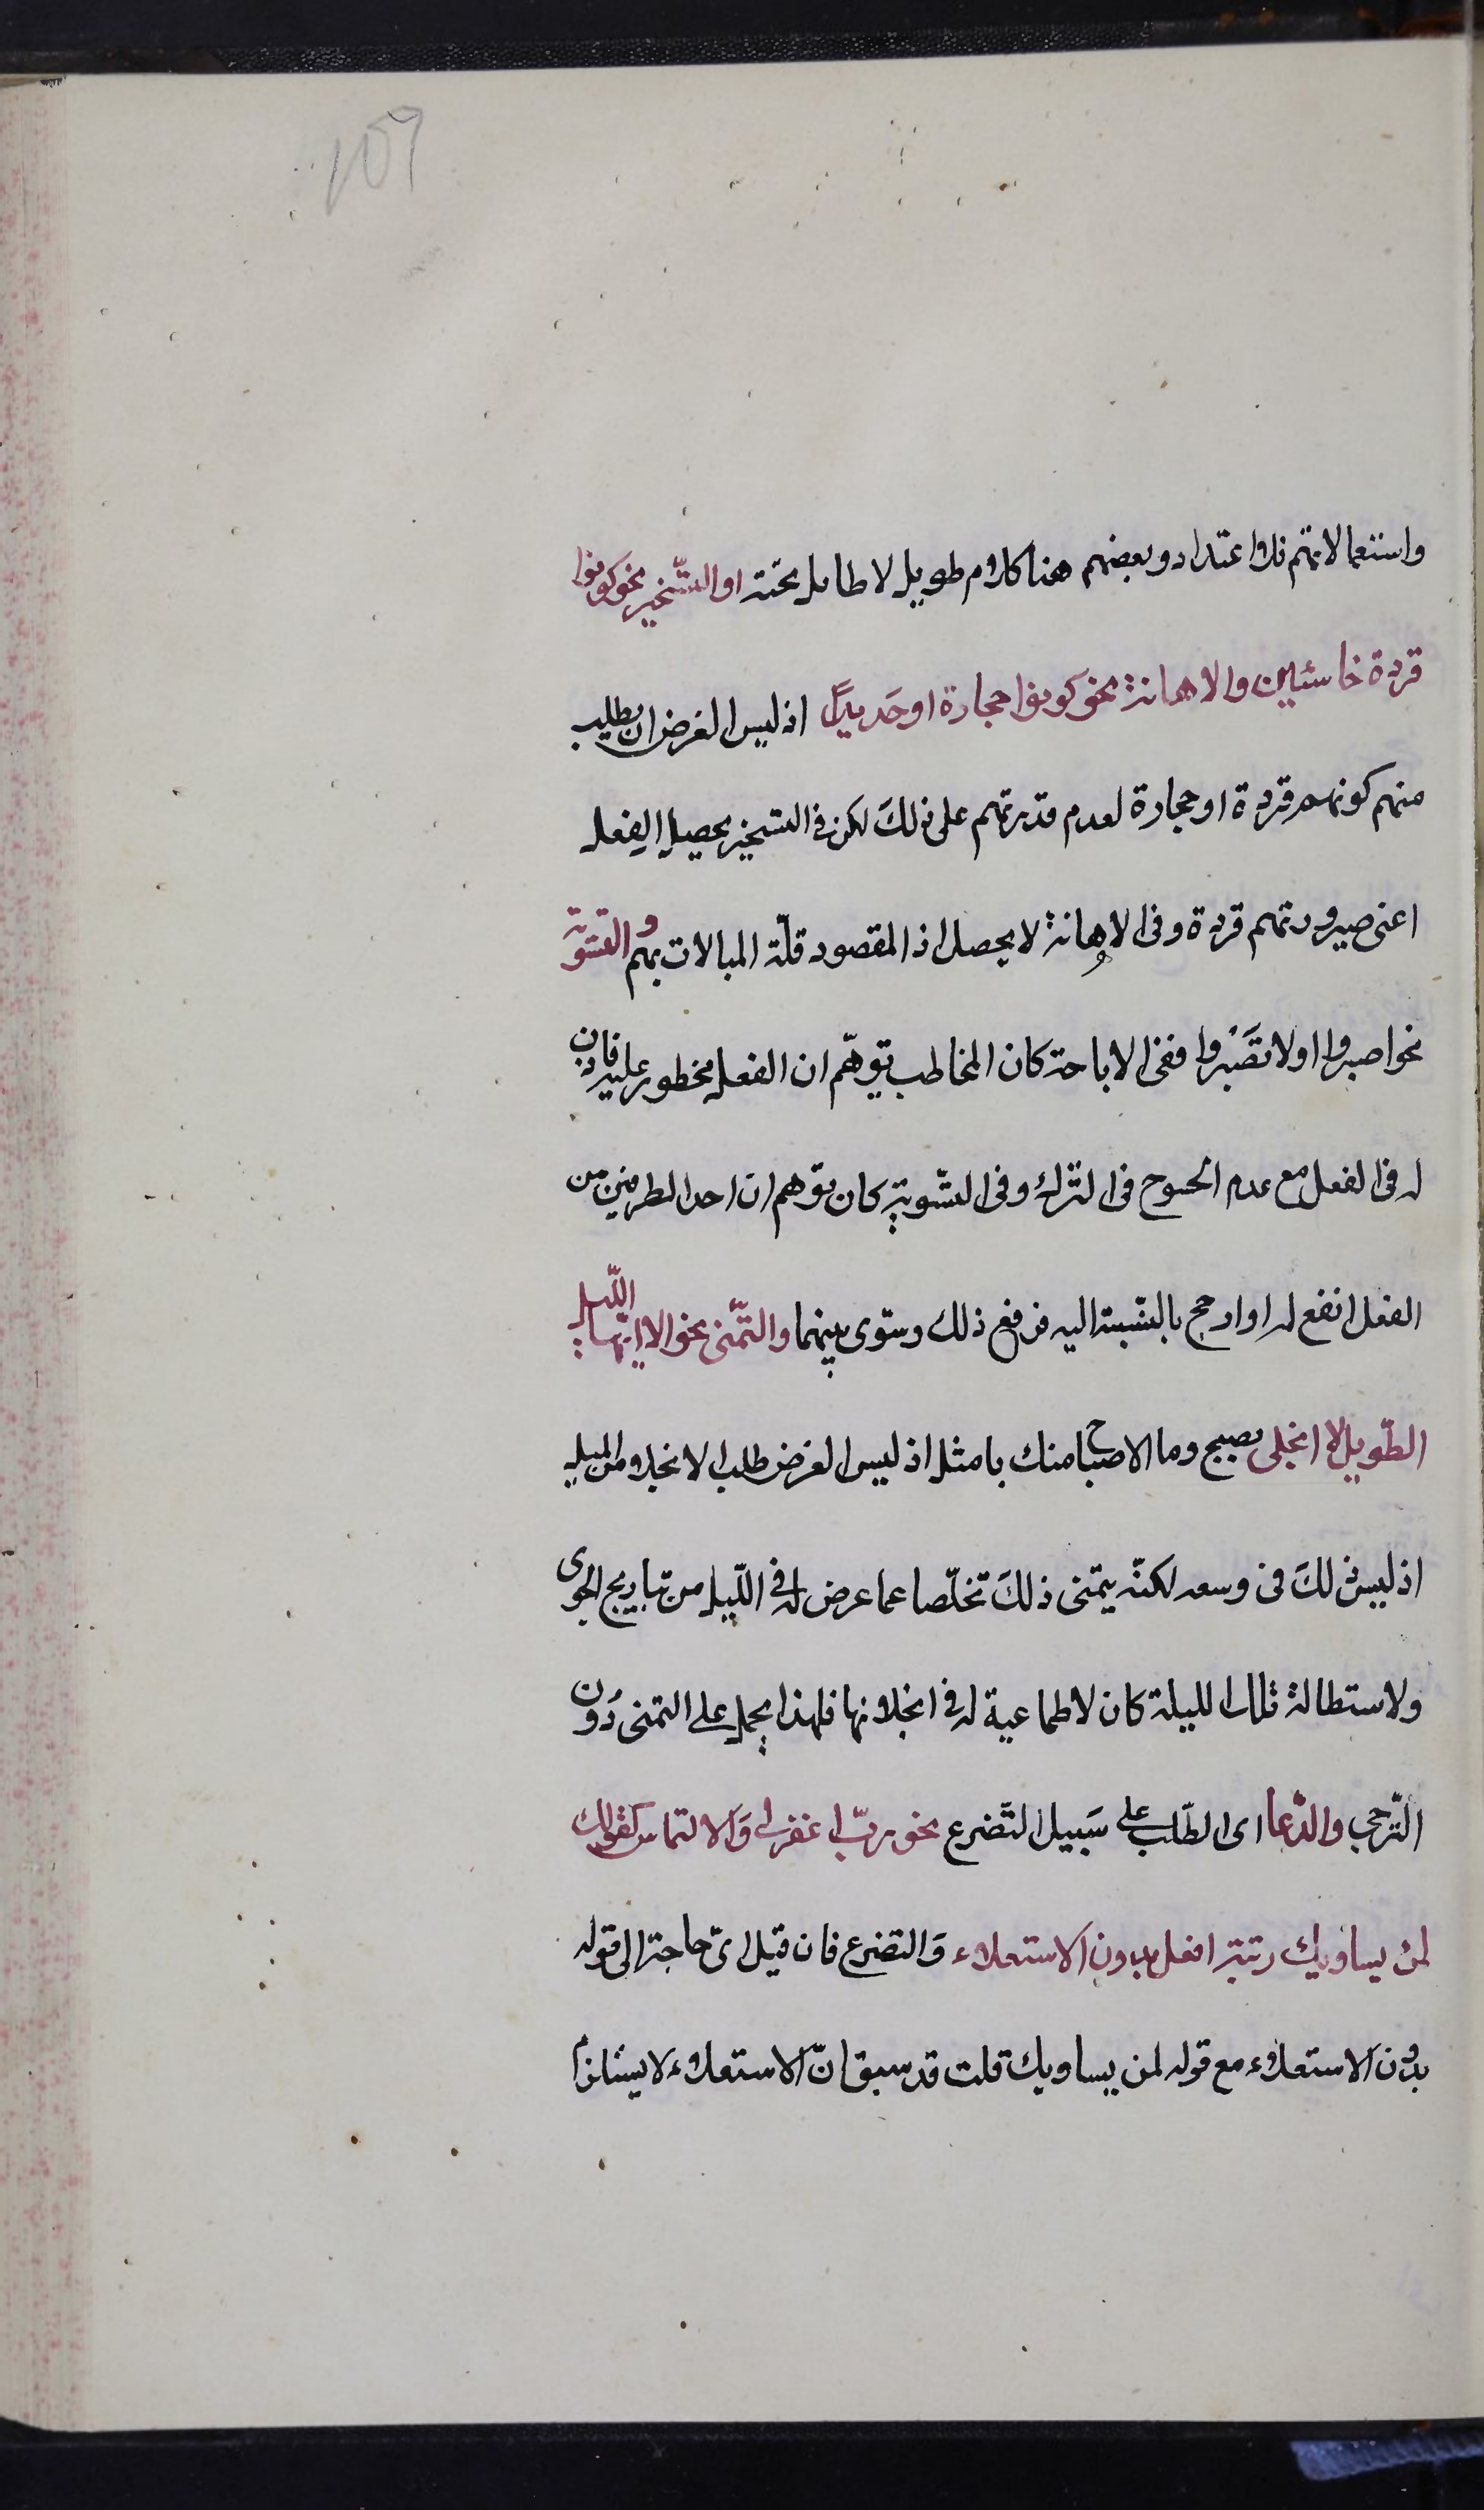 ١٥٩
واستعمالاتهم فلا اعتداد وبعضهم هنا كلام طويل لا طايل تحته او التسخير نحو كونوا
قردة خاسئين والاهانة نحو كونوا حجارة او حَديدًا اذ ليس الغرض ان يطلب
منهم كونهم قردة او حجارة لعدم قدرتهم على ذلكَ لكن في التسخير يحصل الفِعل
اعنى صيرورتهم قردة وفى الاهانة لا يحصل اذ المقصود قلّة المبالات بهم والتسوية
نحو اصبروا اولا تصَبروا ففى الاباحة كان المخاطب توهّم ان الفعل محظور عليه فاذن
له فى الفعل مع عدم الحرج فى الترك وفى التسّوية كان توهم ان احد الطرفين من
الفعل انفع له او ارجح بالنّسبة اليه فرفع ذلك وسوّى بينهما والتمّنى نحو الا ايّها اللّيل
الطّويل الا انجلى بصبح وما الاصباح منك بامثل اذ ليس الغرض طلب الانجلاء من الليل
اذ ليس ذلكَ فى وسعه لكنّه يتمنى ذلكَ تخلّصا عما عرض له فى اللّيل من تباريح الجوى
ولاستطالة تلك الليلة كان لا طماعية له فى انجلائها فلهذا يحمل على التمنى دُون
التّرجى والدّعا اى الطّلب على سَبيل التّضرع نحو ربّ اغفر لى وَالالتماس كقولك
لمن يساويك رتبة افعل بدون الاستعلاء وَالتضرع فان قيل اىّ حاجة الى قوله
بدُون الاستعلاء مع قوله لمن يساويك قلت قد سبق انّ الاستعلاء لا يستلزم